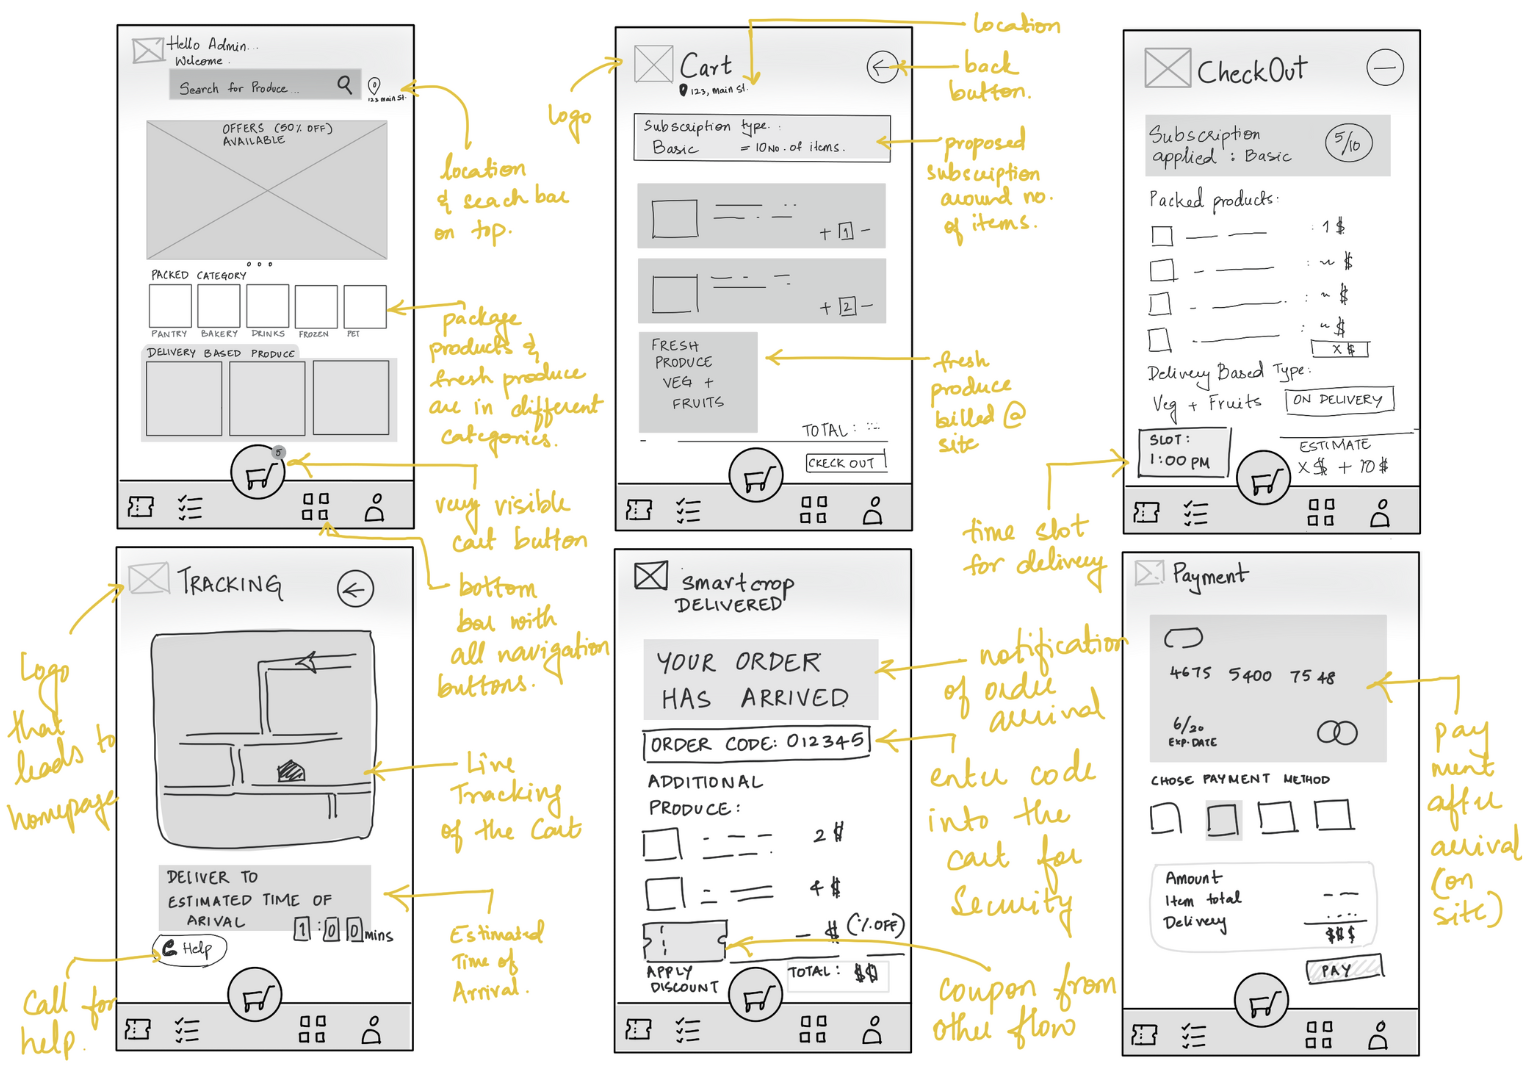 Hello Admin...
Welcome.
Search for Produce...
123 main St.
OFFERS (50% OFF)
AVAILABLE
PACKED CATEGORY
PANTRY
BAKERY
DRINKS
FROZEN
PET
DELIVERY BASED PRODUCE
5
location
& seach bar
on top.
package
products &
fresh produce
are in different
categories.
very visible
cart button
bottom
bar with
all navigation
buttons.
Logo
Cart
123, main St.
location
back
button.
Subscription type..:
Basic = 10 No. of items.
proposed
subscription
around no.
of items.
+ 1 -
+ 2 -
FRESH
PRODUCE
VEG +
FRUITS
fresh
produce
billed @
site
TOTAL:
CKECK OUT
CheckOut
Subscription
applied : Basic
5/10
Packed products:
: 1 $
: ~ $
: ~ $
: ~ $
X $
Delivery Based Type:
Veg + Fruits
ON DELIVERY
SLOT:
1:00 PM
ESTIMATE
X $ + 10 $
time slot
for delivery
TRACKING
Logo
that
leads to
homepage
Live
Tracking
of the Cart
DELIVER TO
ESTIMATED TIME OF
ARIVAL
1 : 0 0 mins
Help
Call for
help.
Estimated
Time of
Arrival.
smartcrop
DELIVERED
YOUR ORDER
HAS ARRIVED
ORDER CODE: 012345
ADDITIONAL
PRODUCE:
2 $
4 $
- $ (% OFF)
APPLY
DISCOUNT
TOTAL: $$
notification
of order
arrival
enter code
into the
cart for
Security
coupon from
other flow
Payment
4675 5400 7548
6/20
EXP. DATE
CHOSE PAYMENT METHOD
Amount
Item total
Delivery
$$$
PAY
pay
ment
after
arrival
(on
site)